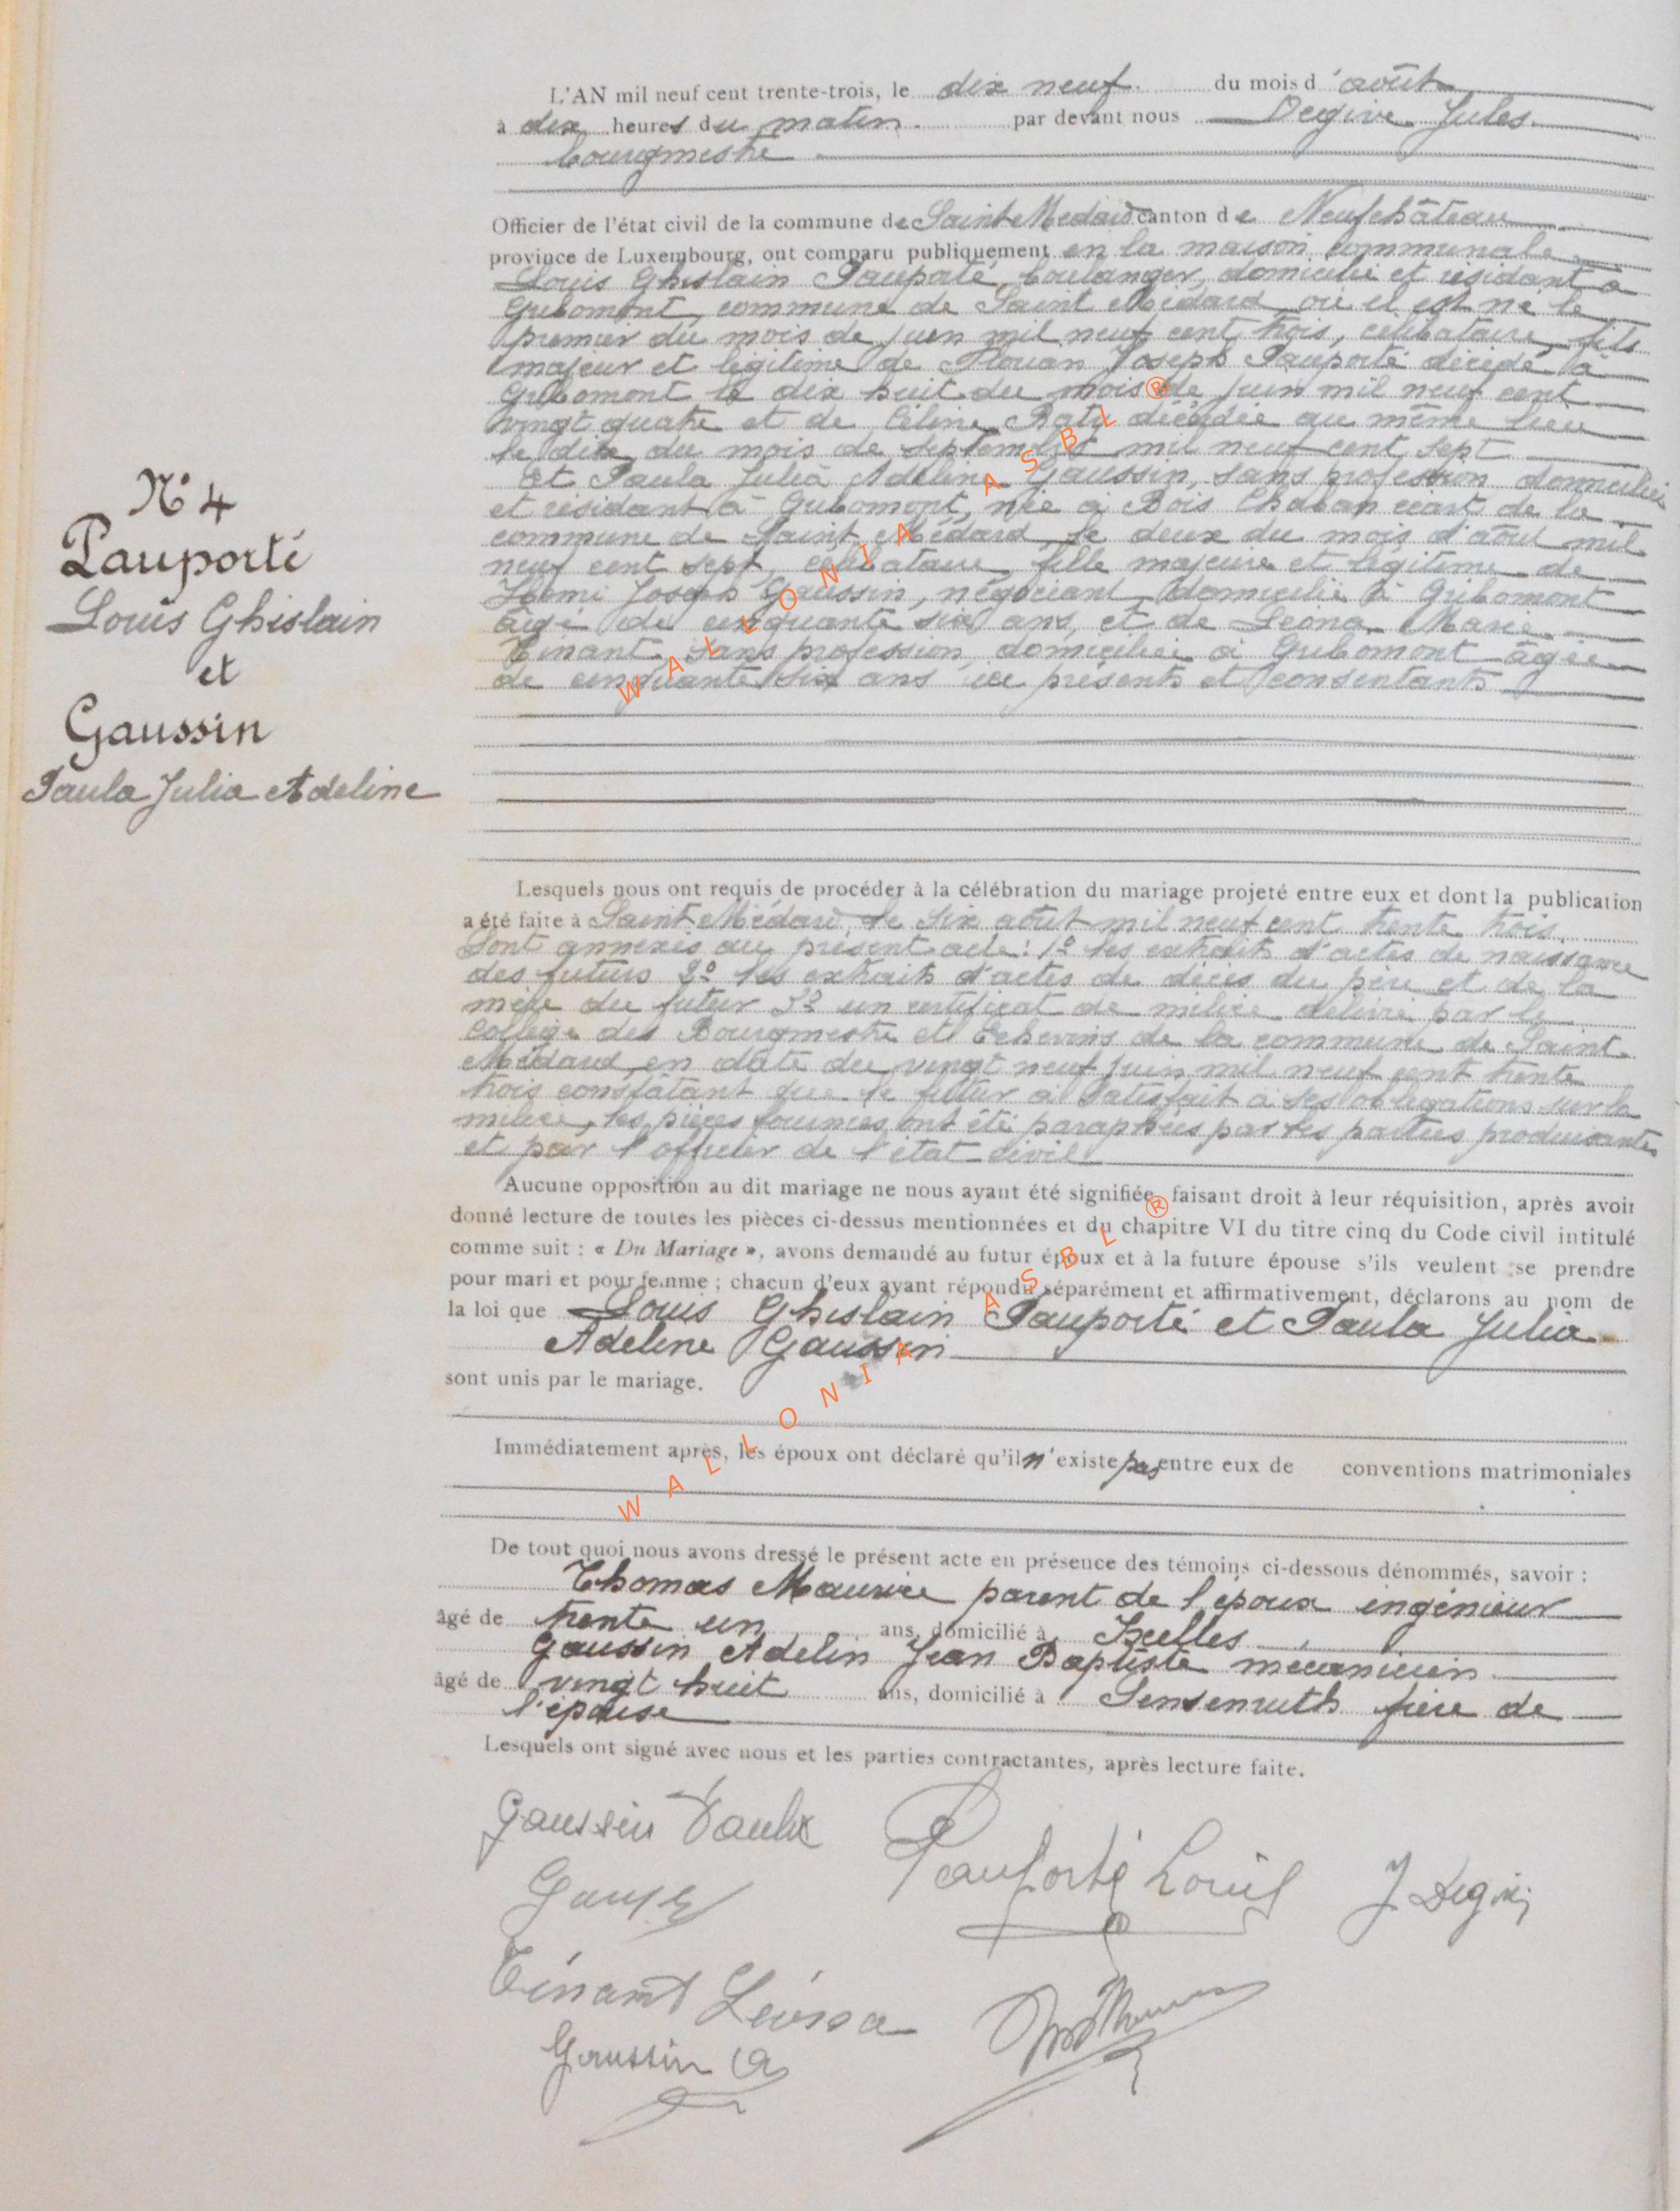 N° 4
Pauporté
Louis Ghislain
et
Gaussin
Paula Julia Adeline
L'AN mil neuf cent trente-trois, le dix neuf du mois d'août
à dix heures du matin par devant nous Degive Jules
bourgmestre
Officier de l'état civil de la commune de Saint Médard canton de Neufchâteau
province de Luxembourg, ont comparu publiquement en la maison communale
Louis Ghislain Pauporté, boulanger, domicilié et résidant à
Gribomont, commune de Saint Médard où il est né le
premier du mois de juin mil neuf cent trois, célibataire, fils
majeur et légitime de Joseph Pauporté décédé à
Gribomont le dix huit du mois de juin mil neuf cent
vingt quatre et de Céline Roty décédée au même lieu
le dix du mois de septembre mil neuf cent sept
Et Paula Julia Adeline Gaussin, sans profession domiciliée
et résidant à Gribomont, née à Bois Chaban écart de la
commune de Saint Médard, le deux du mois d'août mil
neuf cent sept, célibataire, fille majeure et légitime de
Henri Joseph Gaussin, négociant, domicilié à Gribomont
âgé de cinquante six ans, et de Leona Marie
Tinant sans profession, domiciliée à Gribomont âgée
de cinquante six ans ici présents et consentants
Lesquels nous ont requis de procéder à la célébration du mariage projeté entre eux et dont la publication
a été faite à Saint Médard, le six août mil neuf cent trente trois.
Sont annexés au présent acte: 1° les extraits d'actes de naissance
des futurs 2° les extraits d'actes de décès du père et de la
mère du futur 3° un certificat de milice délivré par le
collège des Bourgmestre et Echevins de la commune de Saint
Médard en date du vingt neuf juin mil neuf cent trente
trois constatant que le futur a satisfait à ses obligations sur la
milice, les pièces fournies ont été paraphées par les parties produisantes
et par l'officier de l'état civil
Aucune opposition au dit mariage ne nous ayant été signifiée, faisant droit à leur réquisition, après avoir
donné lecture de toutes les pièces ci-dessus mentionnées et du chapitre VI du titre cinq du Code civil intitulé
comme suit : « Du Mariage », avons demandé au futur époux et à la future épouse s'ils veulent se prendre
pour mari et pour femme ; chacun d'eux ayant répondu séparément et affirmativement, déclarons au nom de
la loi que Louis Ghislain Pauporté et Paula Julia
Adeline Gaussin
sont unis par le mariage.
Immédiatement après, les époux ont déclaré qu'il n'existe pas entre eux de conventions matrimoniales
De tout quoi nous avons dressé le présent acte en présence des témoins ci-dessous dénommés, savoir :
Thomas Maurice parent de l'époux ingénieur
âgé de trente un ans, domicilié à Ixelles
Gaussin Adelin Jean Baptiste mécanicien
âgé de vingt huit ans, domicilié à Sensenruth frère de
l'épouse
Lesquels ont signé avec nous et les parties contractantes, après lecture faite.
Gaussin Paula
Pauporté Louis
J Degive
Tinant Léona
Gaussin A
WALLONIA ASBL ®
WALLONIA ASBL ®